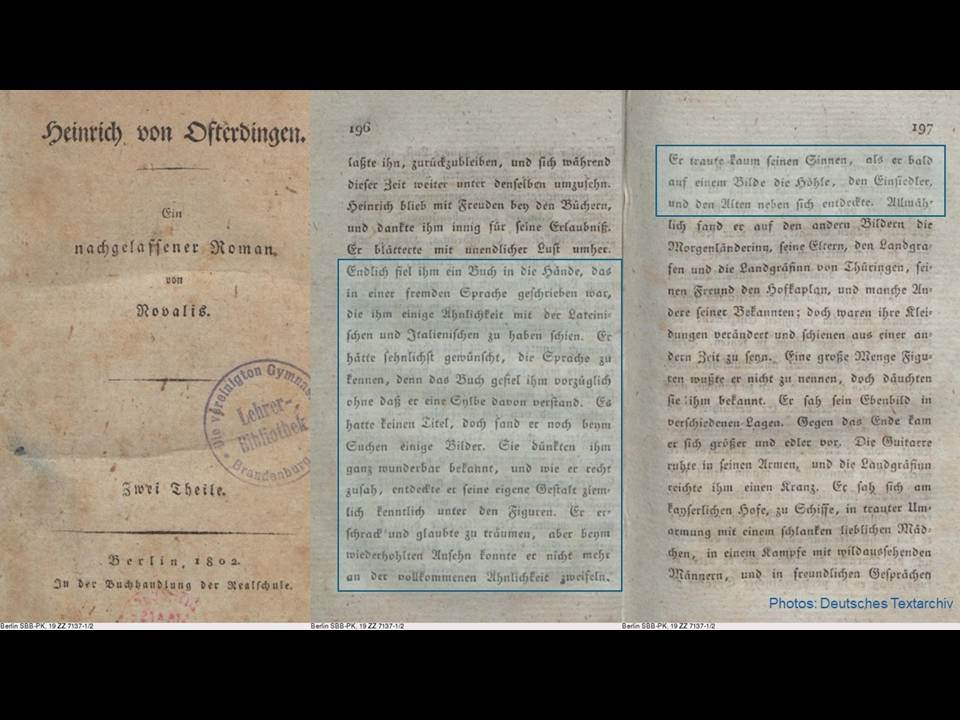 Heinrich von Ofterdingen.
Ein
nachgelassener Roman
von
Novalis.
Die vereinigten Gymnas
Lehrer-
Bibliothek
Brandenburg
Zwei Theile.
Berlin, 1802.
In der Buchhandlung der Realschule.
Berlin SBB-PK, 19 ZZ 7137-1/2
196
laßte ihn, zurückzubleiben, und sich während
dieser Zeit weiter unter denselben umzusehn.
Heinrich blieb mit Freuden bey den Büchern,
und dankte ihm innig für seine Erlaubniß.
Er blätterte mit unendlicher Lust umher.
Endlich fiel ihm ein Buch in die Hände, das
in einer fremden Sprache geschrieben war,
die ihm einige Ähnlichkeit mit der Lateini-
schen und Italienischen zu haben schien. Er
hätte sehnlichst gewünscht, die Sprache zu
kennen, denn das Buch gefiel ihm vorzüglich
ohne daß er eine Sylbe davon verstand. Es
hatte keinen Titel, doch fand er noch beym
Suchen einige Bilder. Sie dünkten ihm
ganz wunderbar bekannt, und wie er recht
zusah, entdeckte er seine eigene Gestalt ziem-
lich kenntlich unter den Figuren. Er er-
schrack und glaubte zu träumen, aber beym
wiederhohlten Ansehn konnte er nicht mehr
an der vollkommenen Ähnlichkeit zweifeln.
Berlin SBB-PK, 19 ZZ 7137-1/2
197
Er traute kaum seinen Sinnen, als er bald
auf einem Bilde die Höhle, den Einsiedler,
und den Alten neben sich entdeckte. Allmäh-
lich fand er auf den andern Bildern die
Morgenländerinn, seine Eltern, den Landgra-
fen und die Landgräfinn von Thüringen, sei-
nen Freund den Hofkaplan, und manche An-
dere seiner Bekannten; doch waren ihre Klei-
dungen verändert und schienen aus einer an-
dern Zeit zu seyn. Eine große Menge Figu-
ren wußte er nicht zu nennen, doch däuchten
sie ihm bekannt. Er sah sein Ebenbild in
verschiedenen Lagen. Gegen das Ende kam
er sich größer und edler vor. Die Guitarre
ruhte in seinen Armen, und die Landgräfinn
reichte ihm einen Kranz. Er sah sich am
kayserlichen Hofe, zu Schiffe, in trauter Um-
armung mit einem schlanken lieblichen Mäd-
chen, in einem Kampfe mit wildaussehenden
Männern, und in freundlichen Gesprächen
Photos: Deutsches Textarchiv
Berlin SBB-PK, 19 ZZ 7137-1/2